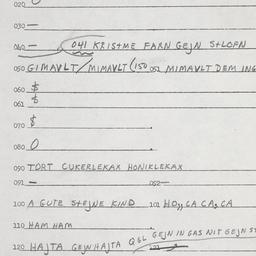 020
030 —
040 — (041 KRISTME FARN GEJN SHLOFN
050 GIMAVLT/MIMAVLT (150 051 MIMAVLT DEM ING
060 $
061 $
070 $
080 O
090 TORT CUKERLEKAX HONIKLEKAX
091 — 092 —
100 A GUTE STEJNE KIND 101 HO,, CA CA, CA
110 HAM HAM
120 HAJTA GEJN HAJTA GEJN IN GAS NIT GEJN